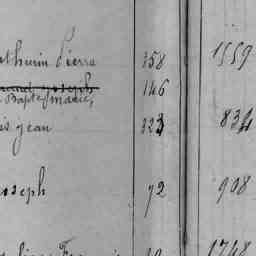 athurin Pierre 358 1559
Bapte marie, 146
is jean 323 834
oseph 72 908
1748